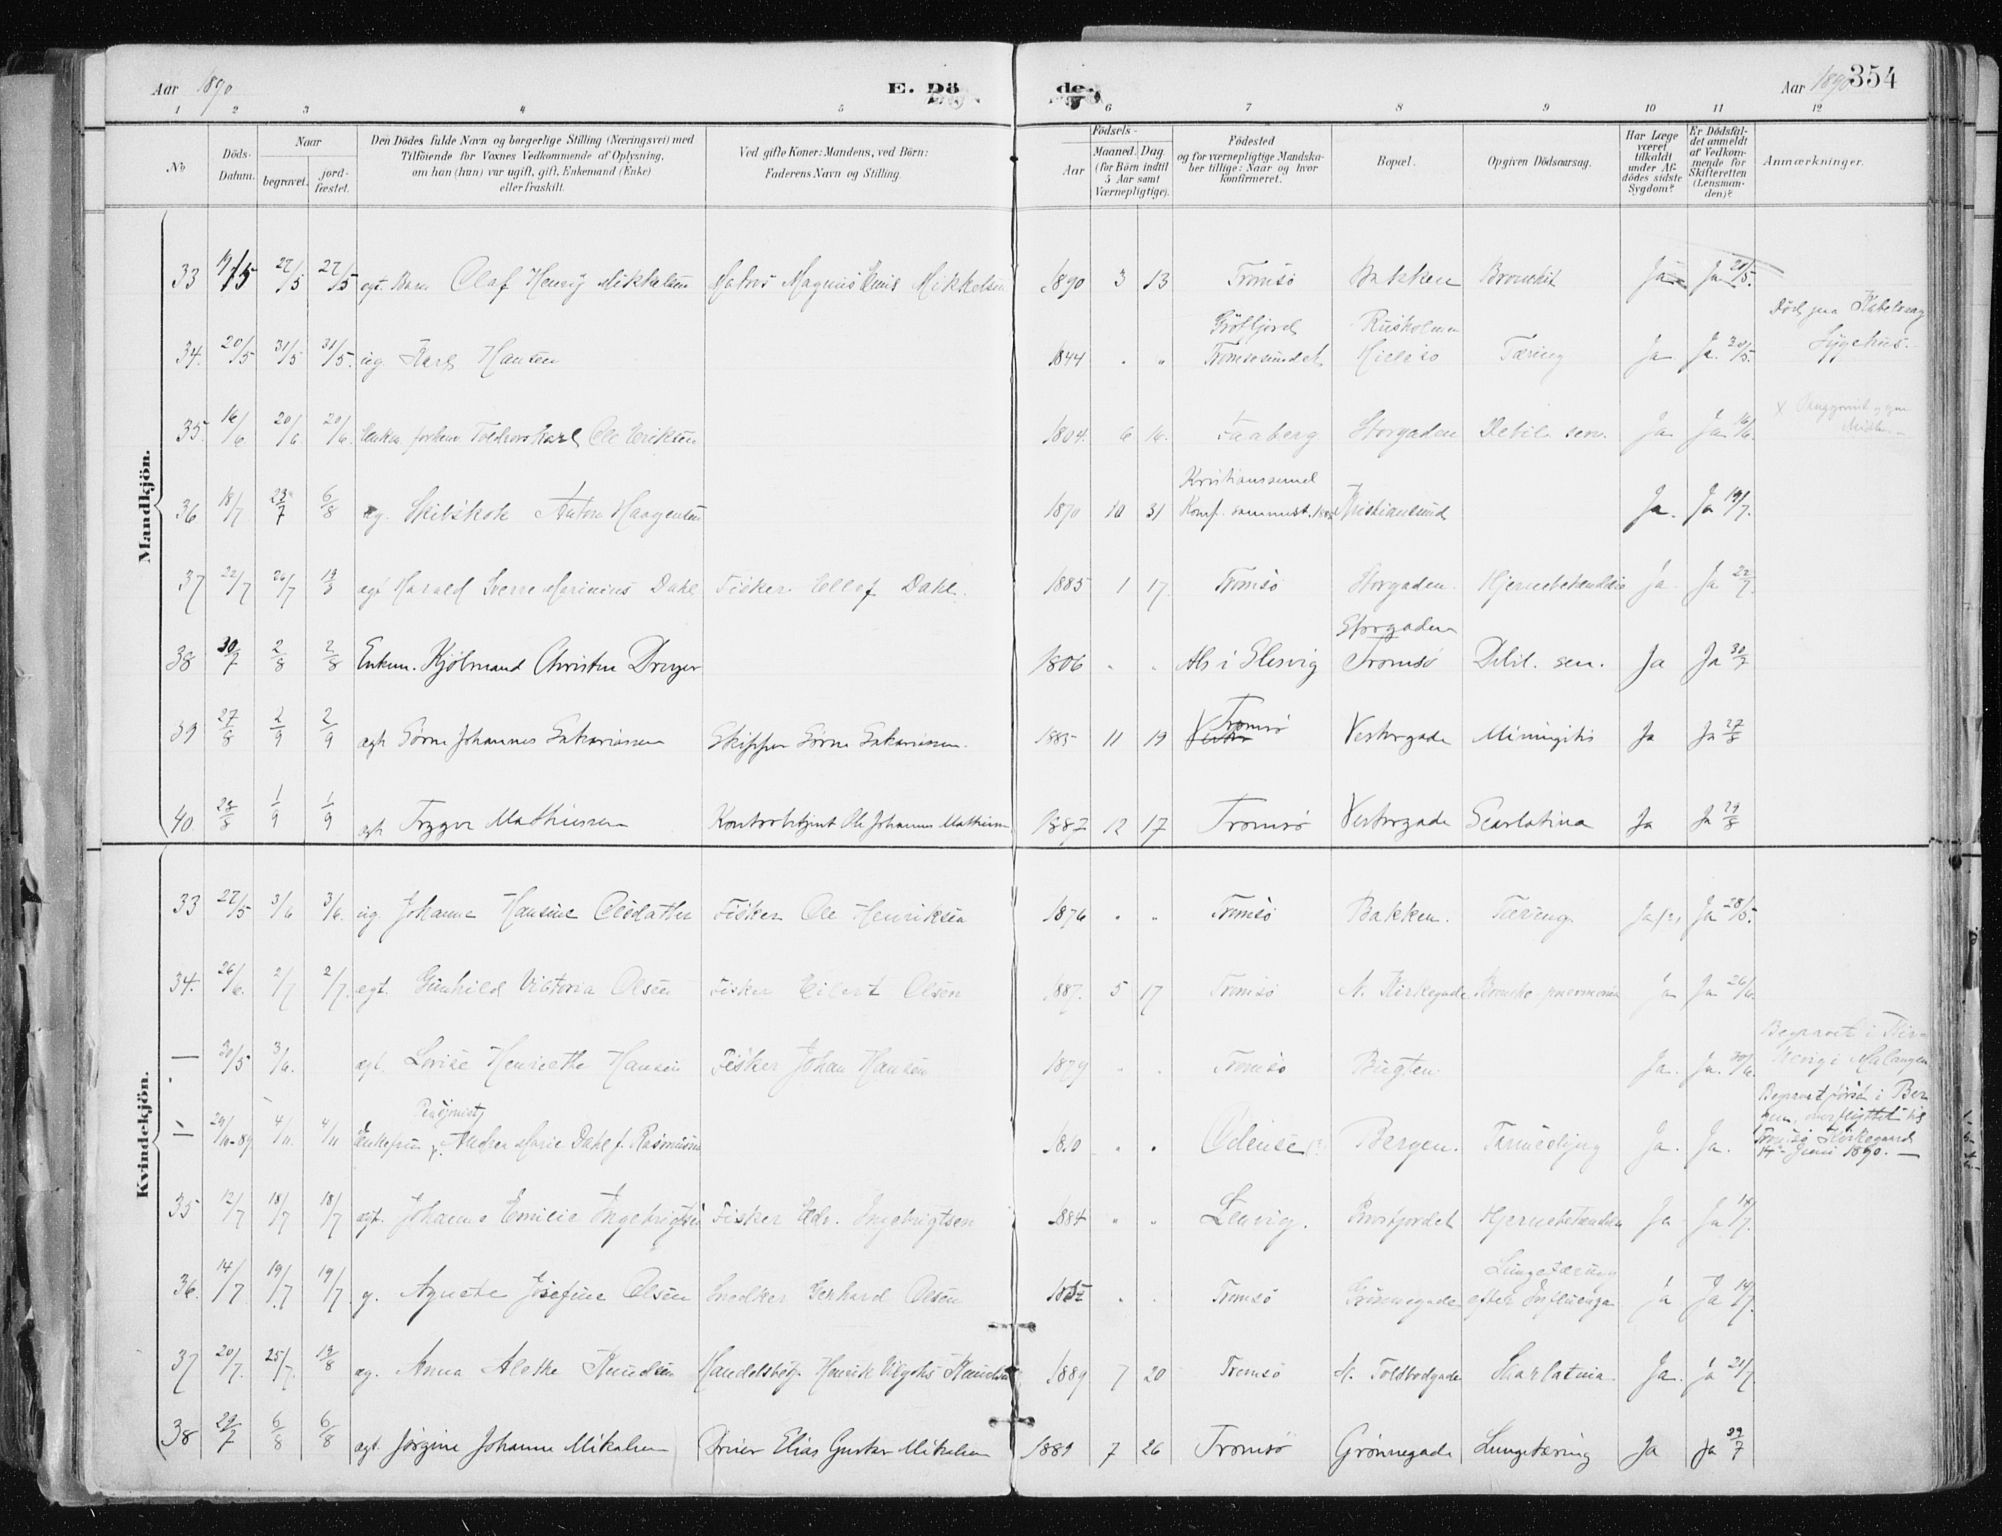 Aar 1890
E. Döde.
Aar 1890
354
1 2 3 4 5 6 7 8 9 10 11 12
No
Döds-Datum.
Naar
begravet.
jord-fæstet.
Den Dödes fulde Navn og borgerlige Stilling (Næringsvei) med
Tilföiende for Voxnes Vedkommende af Oplysning,
om han (hun) var ugift, gift, Enkemand (Enke)
eller fraskilt.
Ved gifte Koner: Mandens, ved Börn:
Faderens Navn og Stilling.
Födsels-
Aar
Maaned. Dag.
(for Börn indtil
5 Aar samt
Værnepligtige).
Födested
og for værnepligtige Mandska-
ber tillige: Naar og hvor
konfirmeret.
Bopæl.
Opgiven Dödsaarsag.
Har Læge
været
tilkaldt
under Af-
dödes sidste
Sygdom?
Er Dödsfal-
det anmeldt
af Vedkom-
mende for
Skifteretten
(Lensman-
den)?
Anmærkninger.
Mandkjön.
33 27/5 27/5 egt. Barn Olaf Henrij Mikkelsen Matros Magnus Mikkelsen 1890 3 13 Tromsö Bakken Bronchit Ja Ja 21/5.
34. 20/5 31/5 31/5. ug. Karl Hansen 1844 " " Tromsösundet Tæring Ja. Ja. 20/5. Död paa Kabelvaag
Sygehus.
35. 16/6 20/6 20/6. Ole Eriksen 1804. 6 16. Faaberg Storgaden Debil. sen. Ja Ja 16/6.
Kristianssund
36 18/7 23/7 6/8 ug. Skibskok Anton Haagensen 1870 10 31 Konf. sammest. Kristiansund Ja. Ja 19/7.
37 22/7 26/7 19/3 egt Harald Sverre Marinius Dahl Fisker Ellef Dahl. 1885 1 17. Tromsö Storgaden. Hjernebetændelse Ja Ja 22/7.
Storgaden
38 30/7 2/8 2/8 Enkem. Kjölmand Christen Dreyer 1806 " " Als i Slesvig Tromsö Debil. sen. Ja Ja 30/7
39 27/8 2/9 2/9 egt. Sörne Johannes Sakariassen Skipper Sörne Sakariassen. 1885 11 19 Tromsö Vestergade Miningitis Ja Ja 27/8
40. 28/8 1/9 1/9 egt. Trygve Mathiesen Kontorbetjent Ole Johannes Mathiesen 1887 12 17 Tromsö Vestergade Scarlatina Ja Ja 29/8
Kvindekjön.
33 27/5 3/6 3/6. ug. Johanne Hansine Olsdatter Fisker Ole Henriksen 1876 " " Tromsö Bakken. Tæring Ja Ja 28/5.
34. 26/6. 2/7 2/7. egt. Gunhild Viktoria Olsen Fisker Eilert Olsen 1887. 5 17 Tromsö N. Kirkegade Broncho pneumonia Ja Ja 26/6.
— 30/5 3/6. egt. Lovise Henriette Hansen Fisker Johan Hansen 1879 " " Tromsö Bugten Ja. Ja. Begravet i
Malangen
Pensjonist
— 4/11. 4/11 Enkefru Andrea Marie Dahl f. Rasmussen 1810 " " Odense Bergen. Ja. Ja. Begravet först i Ber-
gen, overflyttet til
Tromsö Kirkegaard
14de Juni 1890. —
35 12/7 18/7 18/7 egt. Johanne Emilie Ingebrigtsen Fisker Edv. Ingebrigtsen 1884 " " Lenvig. Hjernebetændelse Ja Ja 14/7.
Lungetæring
36. 14/7 19/7 19/7 g. Agnete Josefine Olsen Snedker Gerhard Olsen " " Tromsö Grönnegade efter Influenza Ja Ja 14/7.
37 20/7. 25/7. 19/8 eg. Anna Alethe Knudsen Handelsbetj. Henrik Knudsen 1889 7 20 Tromsö N. Toldbodgade Skarlatina Ja. Ja 21/7
38 29/7 6/8 6/8 egt. Jörgine Johanne Mikalsen Elias Gustav Mikalsen 1889 7 26 Tromsö Grönnegade Lungetæring Ja Ja 29/7